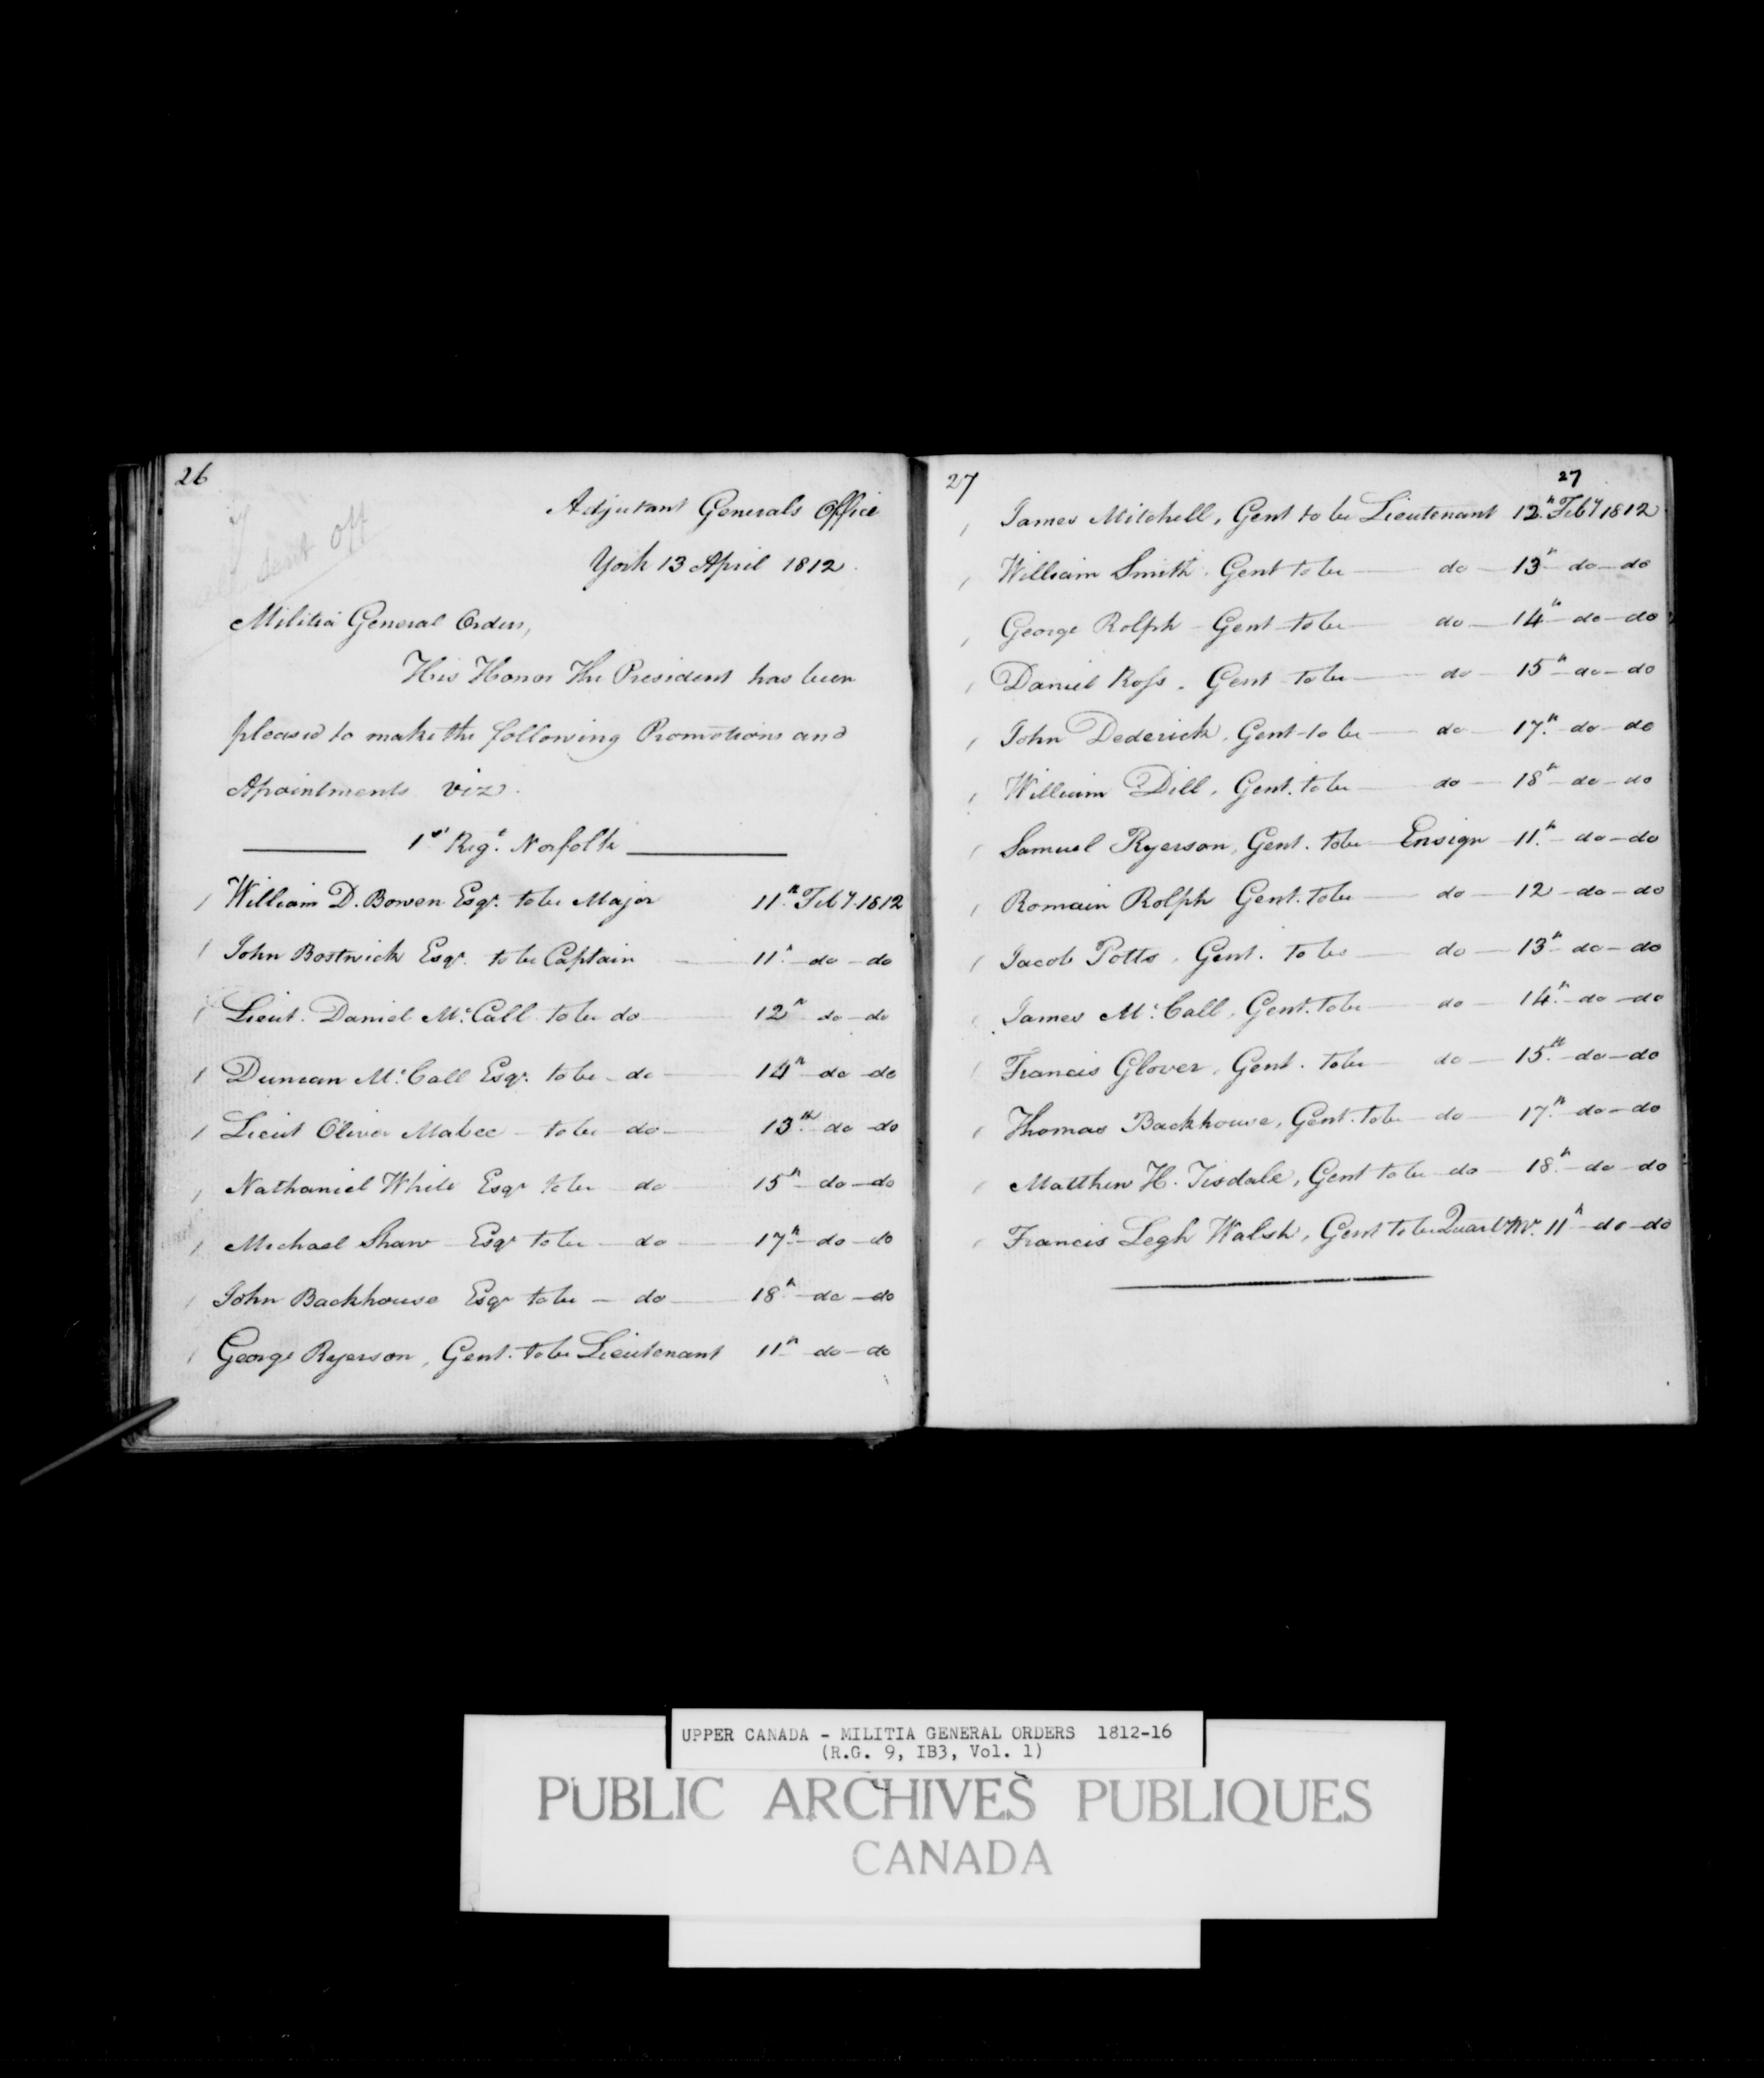 26
sent off
Adjutant Generals Office
York 13 April 1812.
Militia General Orders,
His Honor The President has been
pleased to make the following Promotions and
Apointments viz.
1st Regt. Norfolk
William D. Bowen Esqr. to be Major 11th Feby 1812
John Bostwick Esqr. to be Captain 11th do do
Lieut. Daniel Mc.Call to be do 12th do do
Duncan Mc.Call Esqr. to be do 14th do do
Lieut Oliver Mabee to be do 13th do do
Nathaniel White Esqr to be do 15th do do
Michael Shaw Esqr to be do 17th do do
John Backhouse Esqr to be do 18th do do
George Ryerson, Gent. to be Lieutenant 11th do do
27
27
James Mitchell, Gent to be Lieutenant 12th Feby 1812
William Smith. Gent to be do 13th do do
George Rolph Gent to be do 14th do do
Daniel Ross. Gent to be do 15th do do
John Dederick, Gent to be do 17th do do
William Dill, Gent. to be do 18th do do
Samuel Ryerson, Gent. to be Ensign 11th do do
Romain Rolph Gent. to be do 12 do do
Jacob Potts, Gent. to be do 13th do do
James Mc.Call, Gent. to be do 14th do do
Francis Glover, Gent. to be do 15th do do
Thomas Backhouse, Gent. to be do 17th do do
Matthew H. Tisdale, Gent to be do 18th do do
Francis Legh Walsh, Gent to be Quartr Mr. 11th do do
UPPER CANADA - MILITIA GENERAL ORDERS 1812-16
(R.G. 9, IB3, Vol. 1)
PUBLIC ARCHIVES PUBLIQUES
CANADA